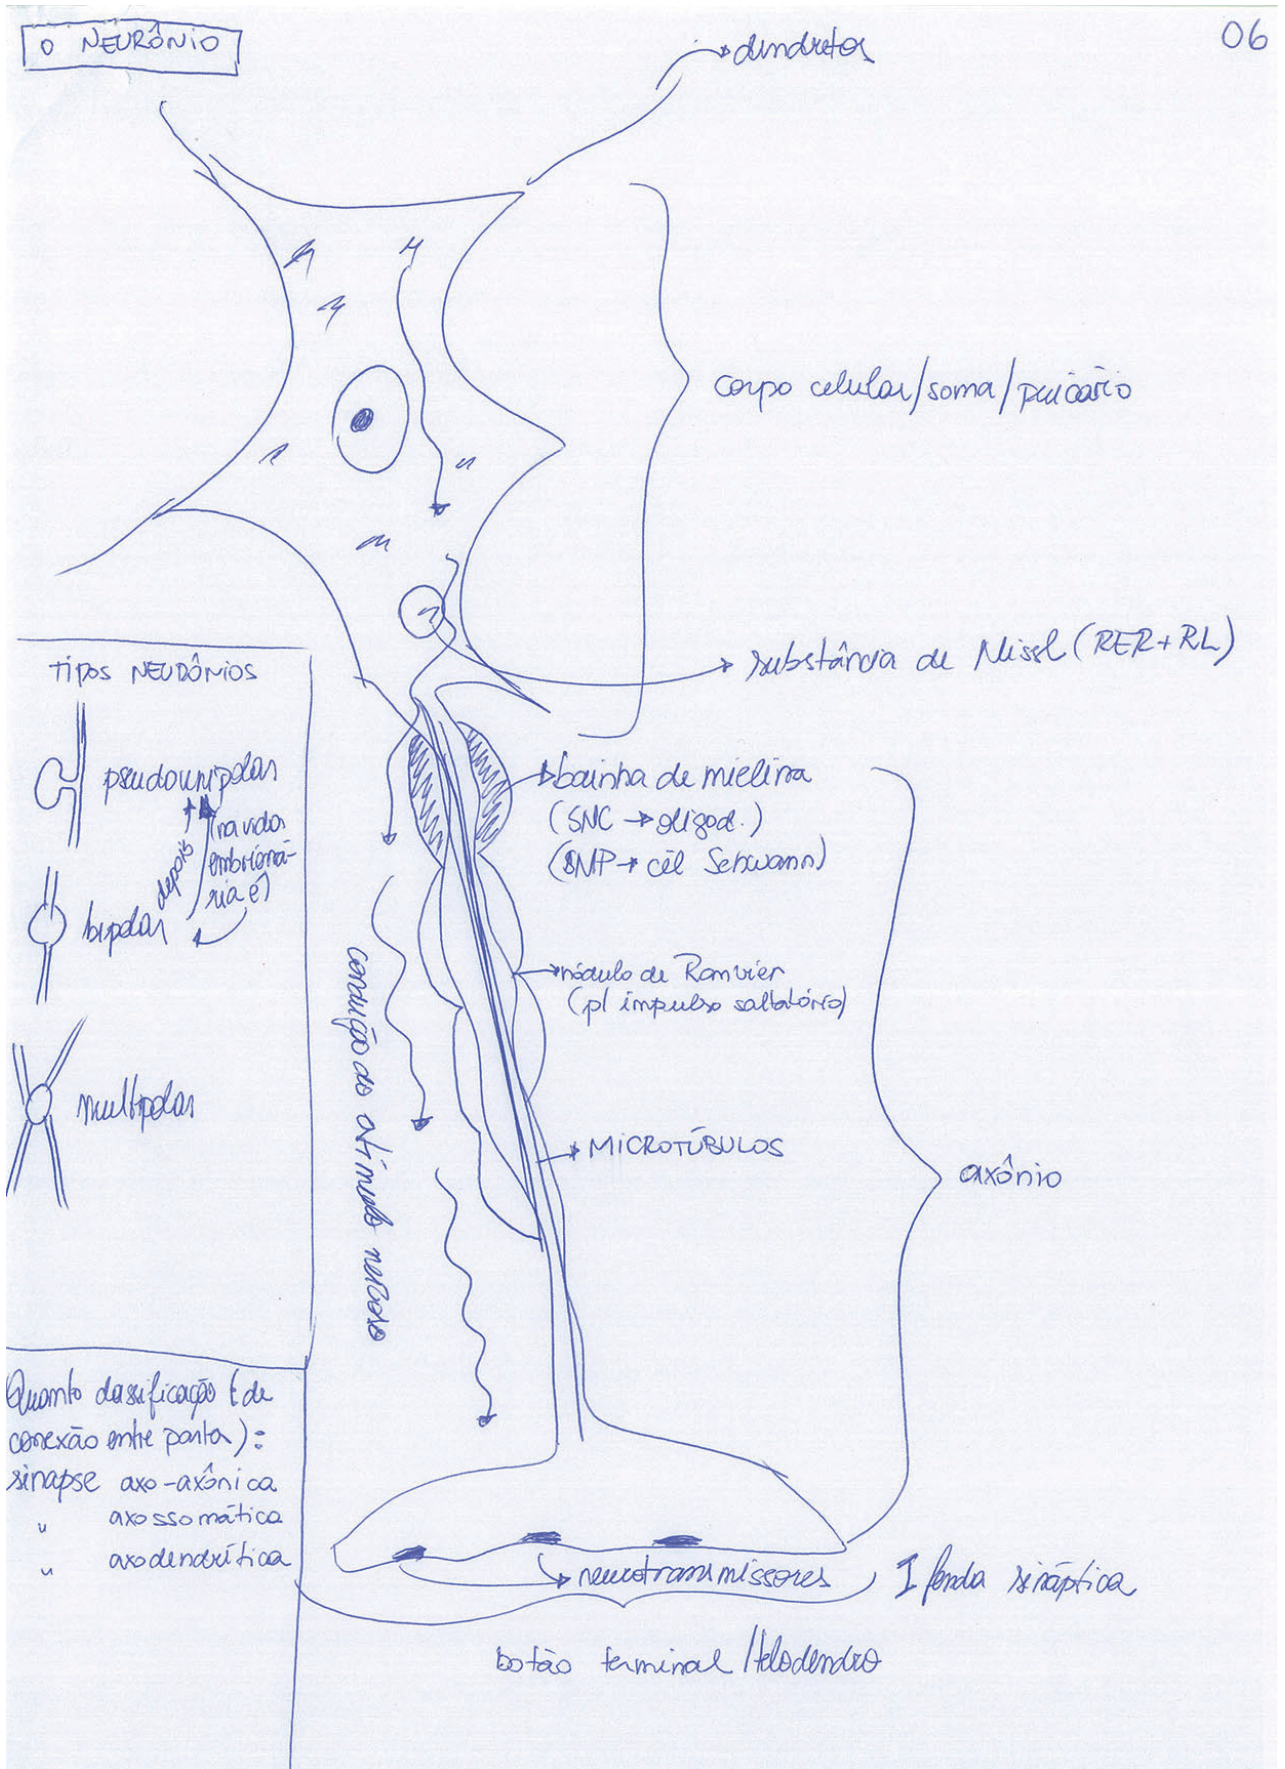 O NEURÔNIO
06
dendritos
corpo celular/soma/pericário
substância de Nissl (RER+RL)
TIPOS NEURÔNIOS
pseudounipolar
depois
(na vida
embrioná-
ria é)
bipolar
multipolar
bainha de mielina
(SNC → oligod.)
(SNP → cél Schwann)
nódulo de Ranvier
(p/ impulso saltatório)
MICROTÚBULOS
axônio
condução do estímulo nervoso
Quanto classificação (de
conexão entre partes):
sinapse axo-axônica
" axossomática
" axodendrítica
neurotransmissores
fenda sináptica
botão terminal/telodendro